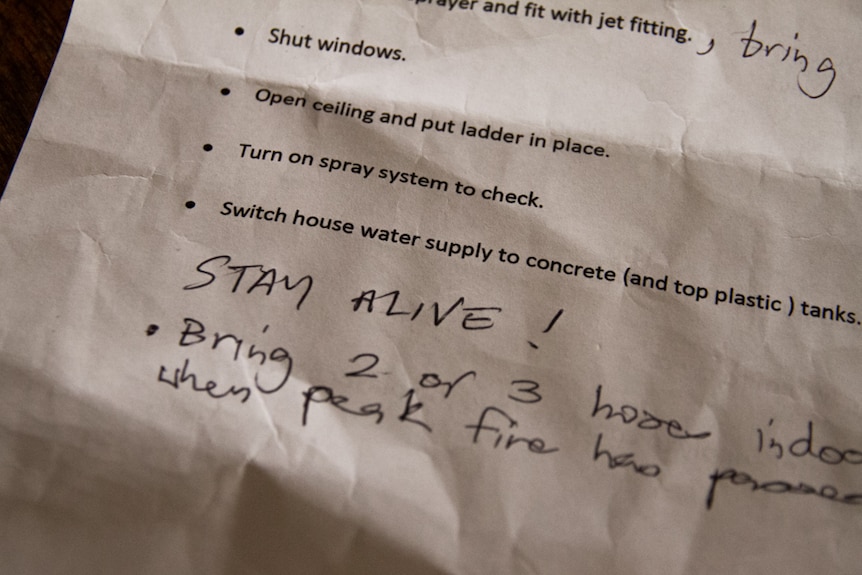 and fit with jet fitting. , bring
• Shut windows.
• Open ceiling and put ladder in place.
• Turn on spray system to check.
• Switch house water supply to concrete (and top plastic ) tanks.
STAY ALIVE !
• Bring 2 or 3 hoses indoo
when peak fire has passed